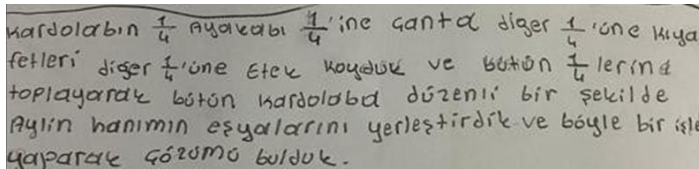 Kardolabın 1/4 Ayakabı 1/4'ine Çanta diğer 1/4'üne Kıya
fetleri diğer 1/4'üne Etek Koyduk ve bütün 1/4 lerind
toplayarak bütün Kardolaba düzenli bir şekilde
Aylin hanımın eşyalarını yerleştirdik ve böyle bir işle
yaparak Çözümü bulduk.